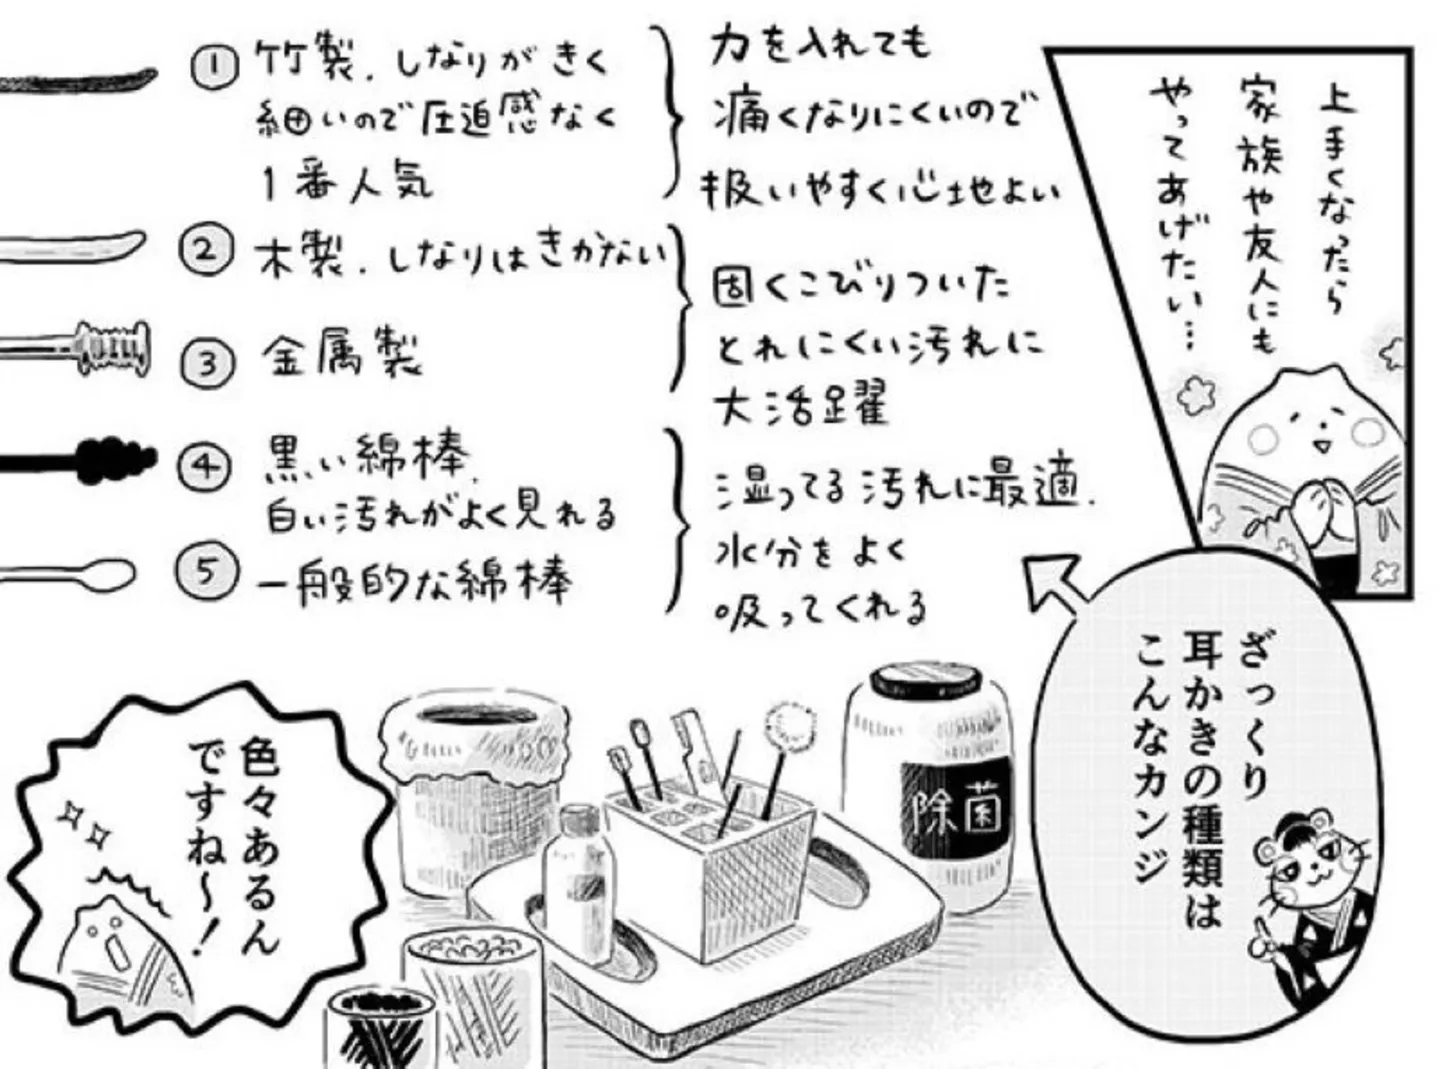 上手くなったら
家族や友人にも
やってあげたい…
① 竹製．しなりがきく
細いので圧迫感なく
1番人気
力を入れても
痛くなりにくいので
扱いやすく心地よい
② 木製．しなりはきかない
③ 金属製
固くこびりついた
とれにくい汚れに
大活躍
④ 黒い綿棒．
白い汚れがよく見れる
⑤ 一般的な綿棒
湿ってる汚れに最適．
水分をよく
吸ってくれる
ざっくり
耳かきの種類は
こんなカンジ
除菌
色々あるん
ですね〜！